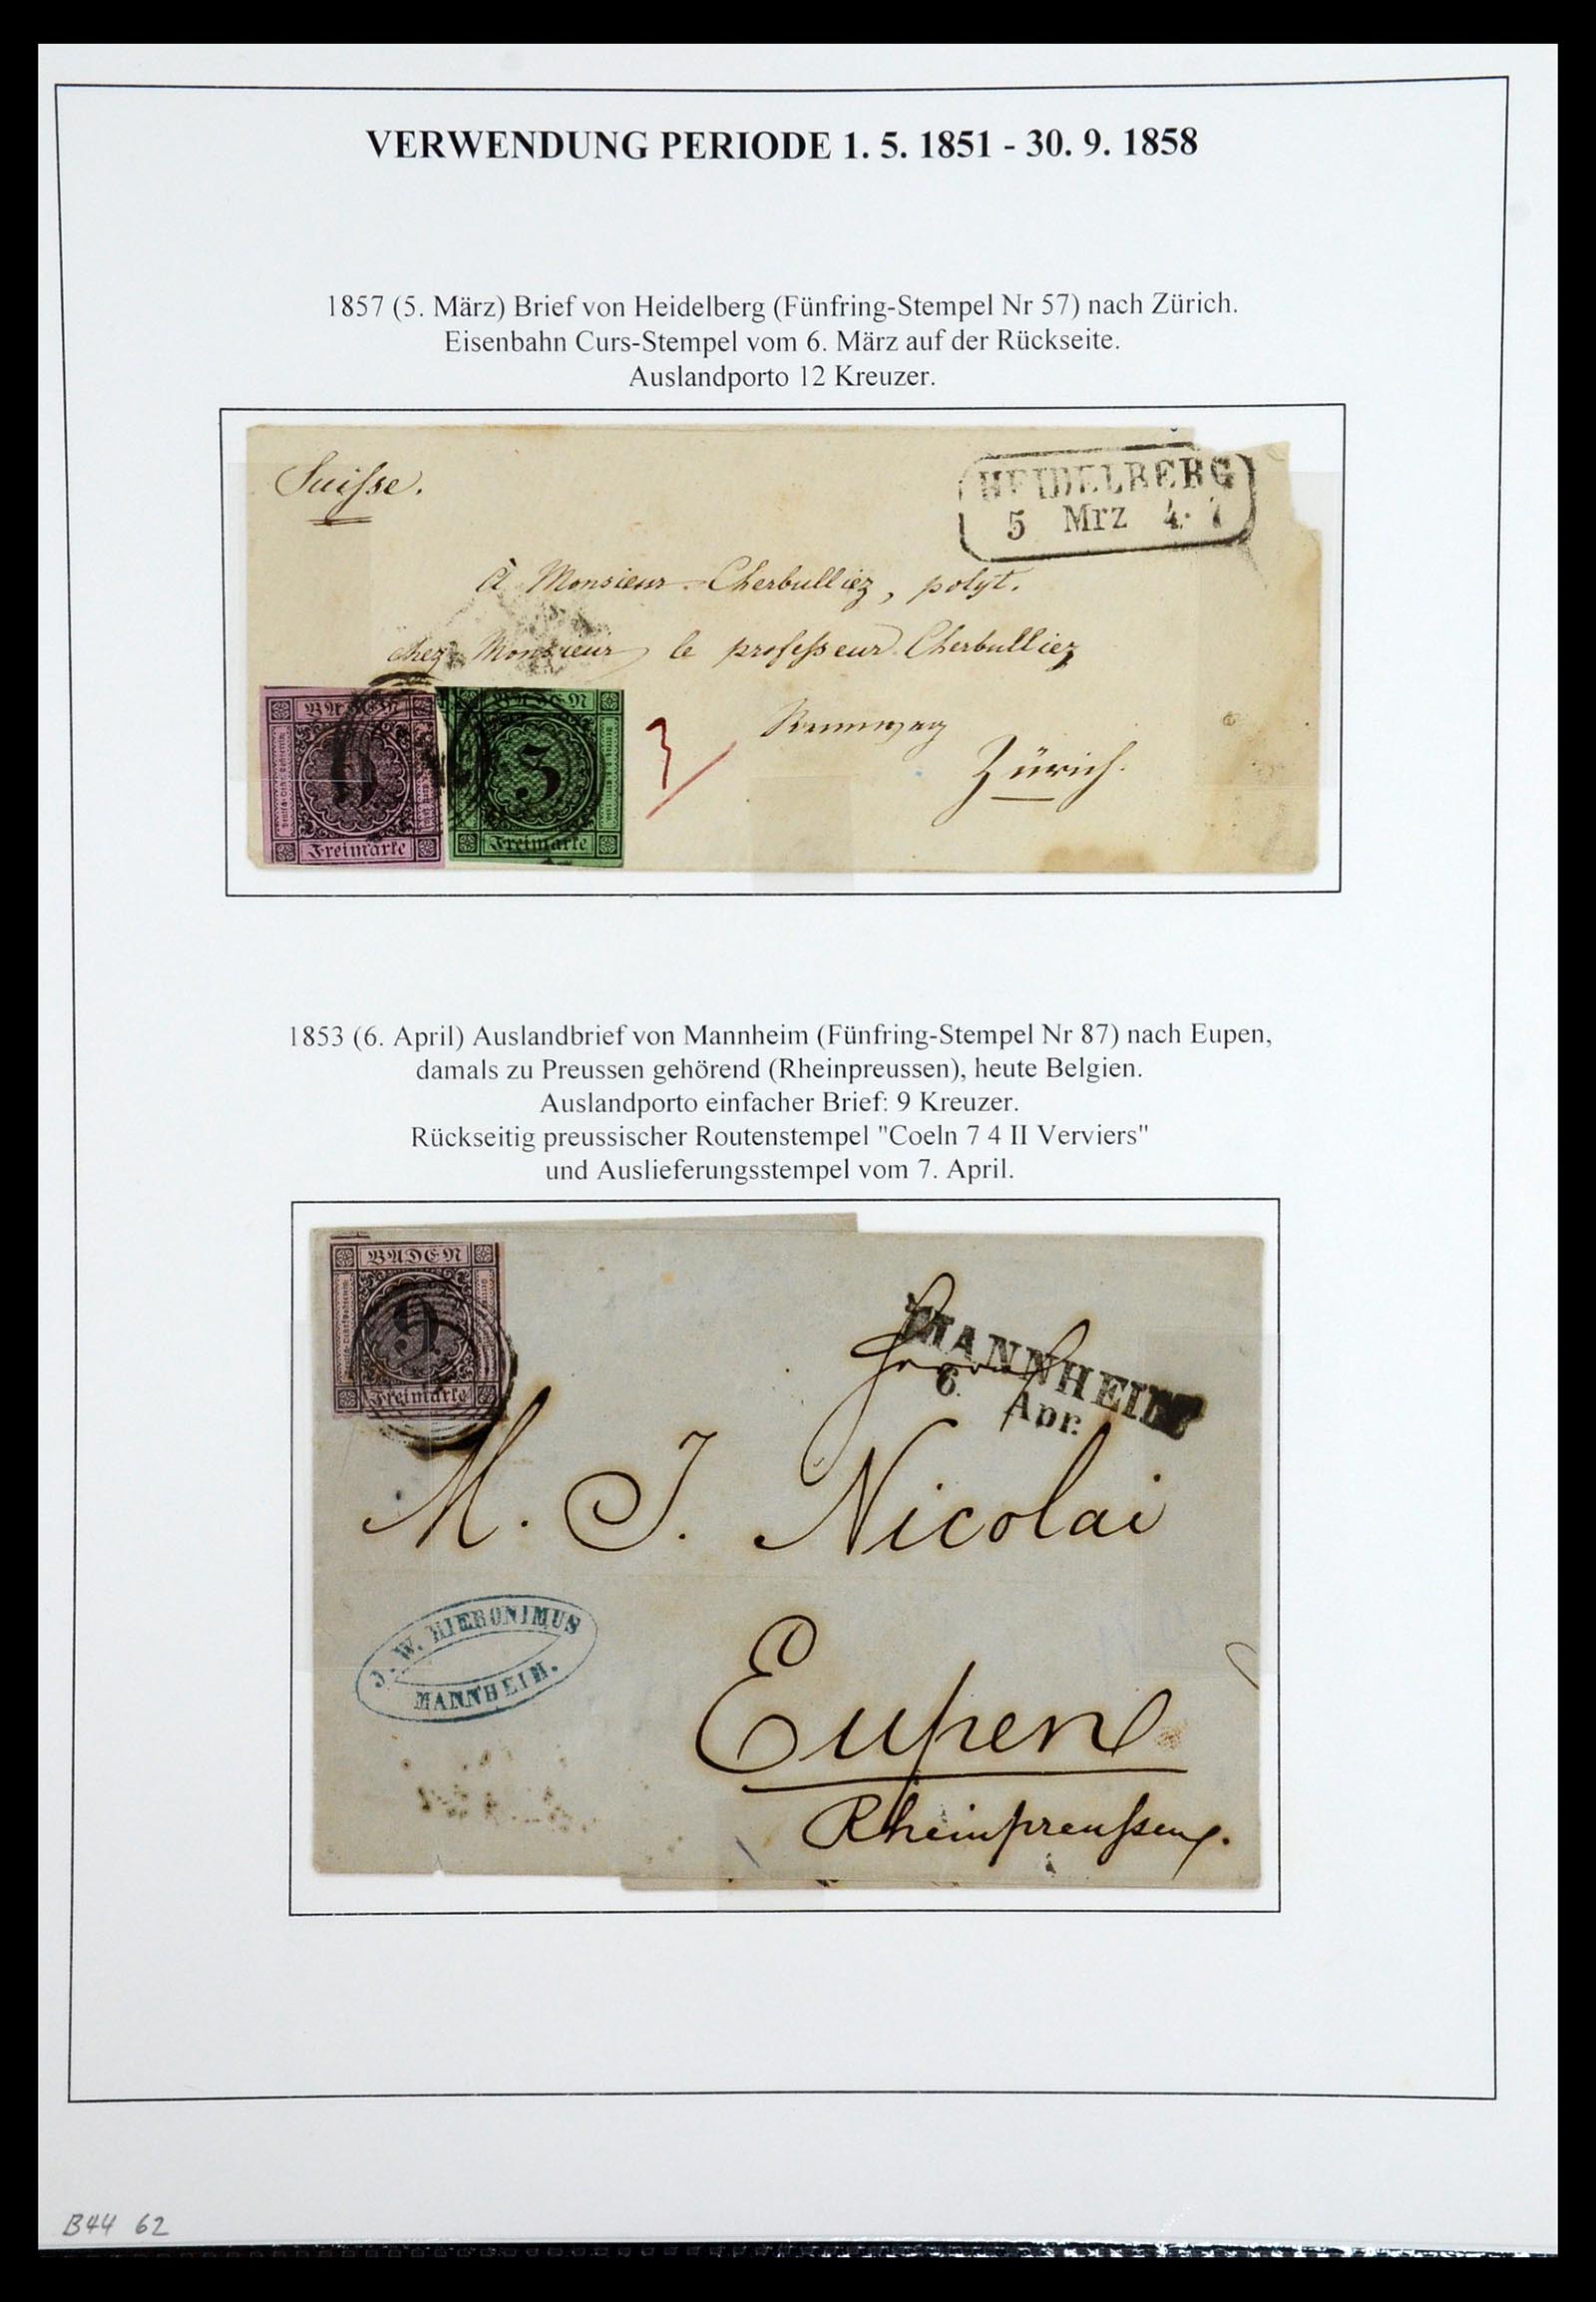 VERWENDUNG PERIODE 1. 5. 1851 - 30. 9. 1858
1857 (5. März) Brief von Heidelberg (Fünfring-Stempel Nr 57) nach Zürich.
Eisenbahn Curs-Stempel vom 6. März auf der Rückseite.
Auslandporto 12 Kreuzer.
Suisse.
HEIDELBERG
5 Mrz 4·7
À Monsieur Cherbulliez, polyt.
chez Monsieur le professeur Cherbulliez
Zürich.
BADEN
9
Freimarke
BADEN
3
Freimarke
3
1853 (6. April) Auslandbrief von Mannheim (Fünfring-Stempel Nr 87) nach Eupen,
damals zu Preussen gehörend (Rheinpreussen), heute Belgien.
Auslandporto einfacher Brief: 9 Kreuzer.
Rückseitig preussischer Routenstempel "Coeln 7 4 II Verviers"
und Auslieferungsstempel vom 7. April.
BADEN
9
Freimarke
MANNHEIM
6. Apr.
Herrn
M. J. Nicolai
J. W. HIERONIMUS
MANNHEIM.
Eupen
Rheinpreußen.
B44 62